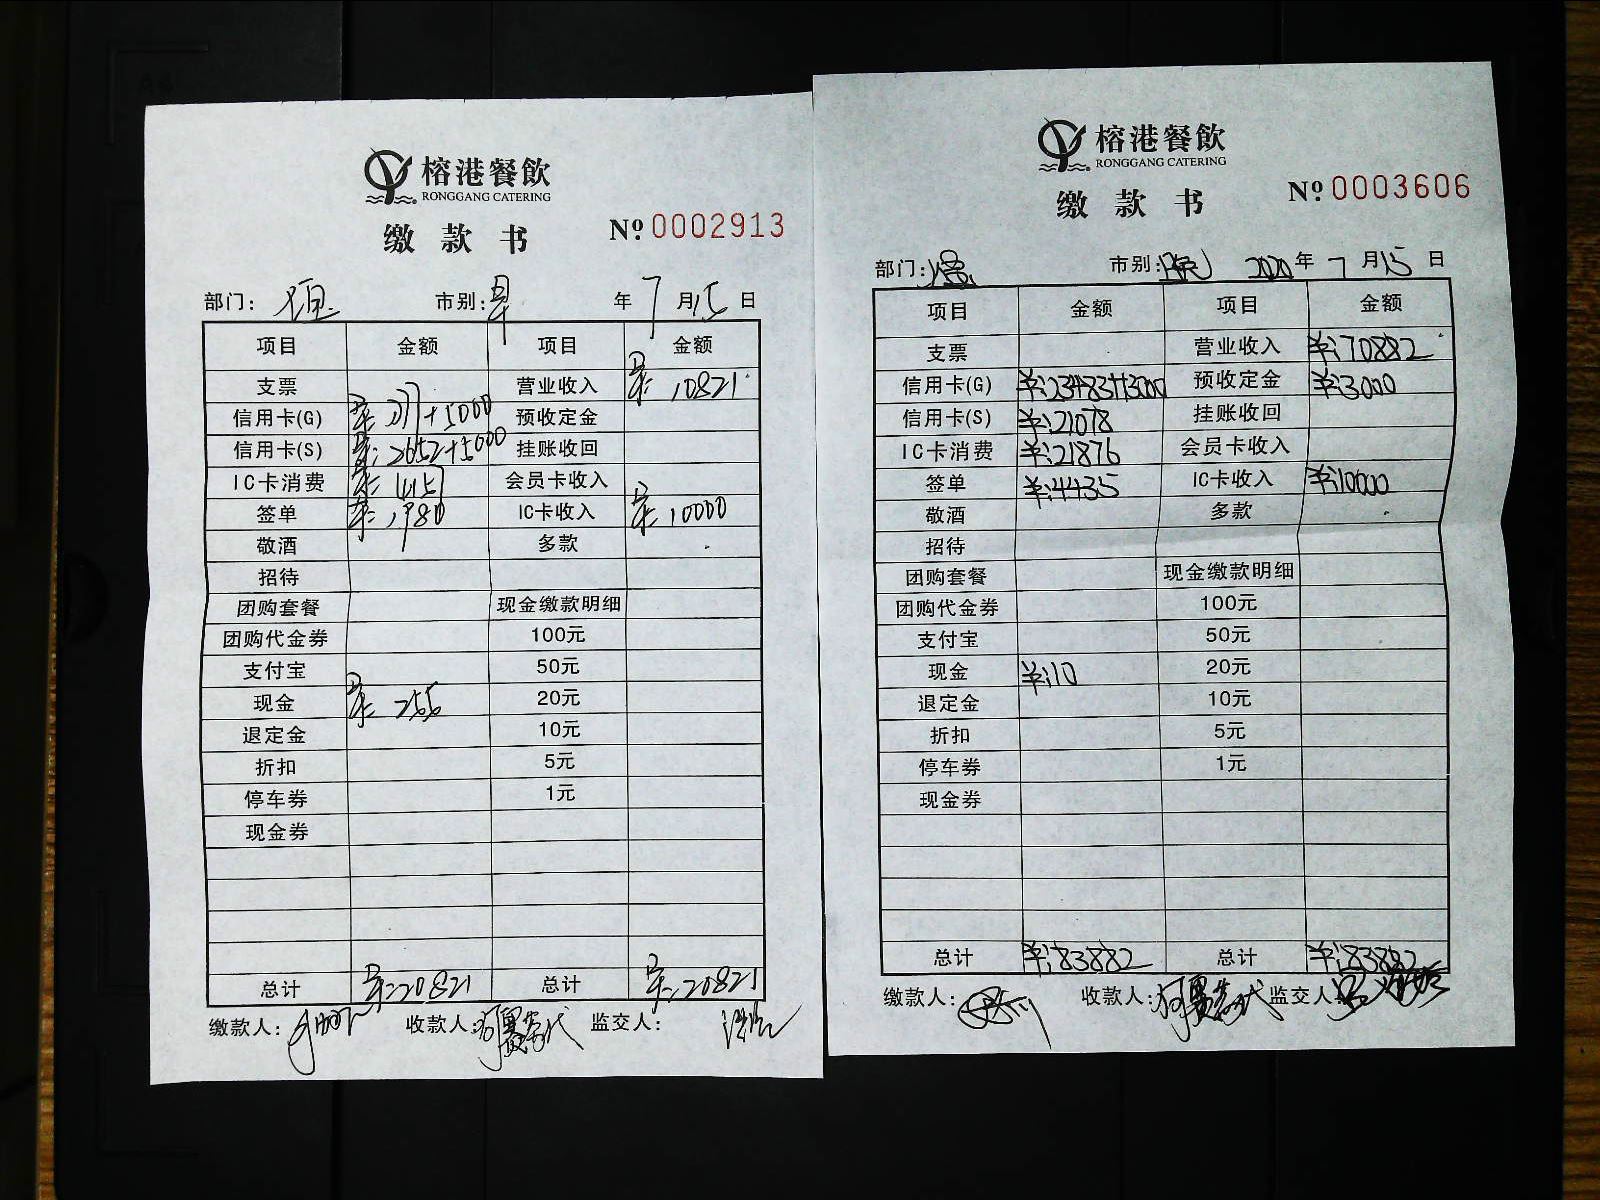 榕港餐飲
RONGGANG CATERING
缴款书
№ 0002913
部门: 市别:早 年 7 月 15 日
项目 金额 项目 金额
支票 营业收入 10821
信用卡(G) +5000 预收定金
信用卡(S) 2652+5000 挂账收回
IC卡消费 会员卡收入
签单 1980 IC卡收入 10000
敬酒 多款
招待
团购套餐 现金缴款明细
团购代金券 100元
支付宝 50元
现金 255 20元
退定金 10元
折扣 5元
停车券 1元
现金券
总计 20821 总计 20821
缴款人: 收款人: 监交人:
榕港餐飲
RONGGANG CATERING
缴款书
№ 0003606
部门: 市别: 2020 年 7 月 15 日
项目 金额 项目 金额
支票 营业收入 ¥:70882
信用卡(G) ¥:23483+13000 预收定金 ¥:3000
信用卡(S) ¥:21078 挂账收回
IC卡消费 ¥:21876 会员卡收入
签单 ¥:4435 IC卡收入 ¥:10000
敬酒 多款
招待
团购套餐 现金缴款明细
团购代金券 100元
支付宝 50元
现金 ¥:10 20元
退定金 10元
折扣 5元
停车券 1元
现金券
总计 ¥:83882 总计 ¥:83882
缴款人: 收款人: 监交人: